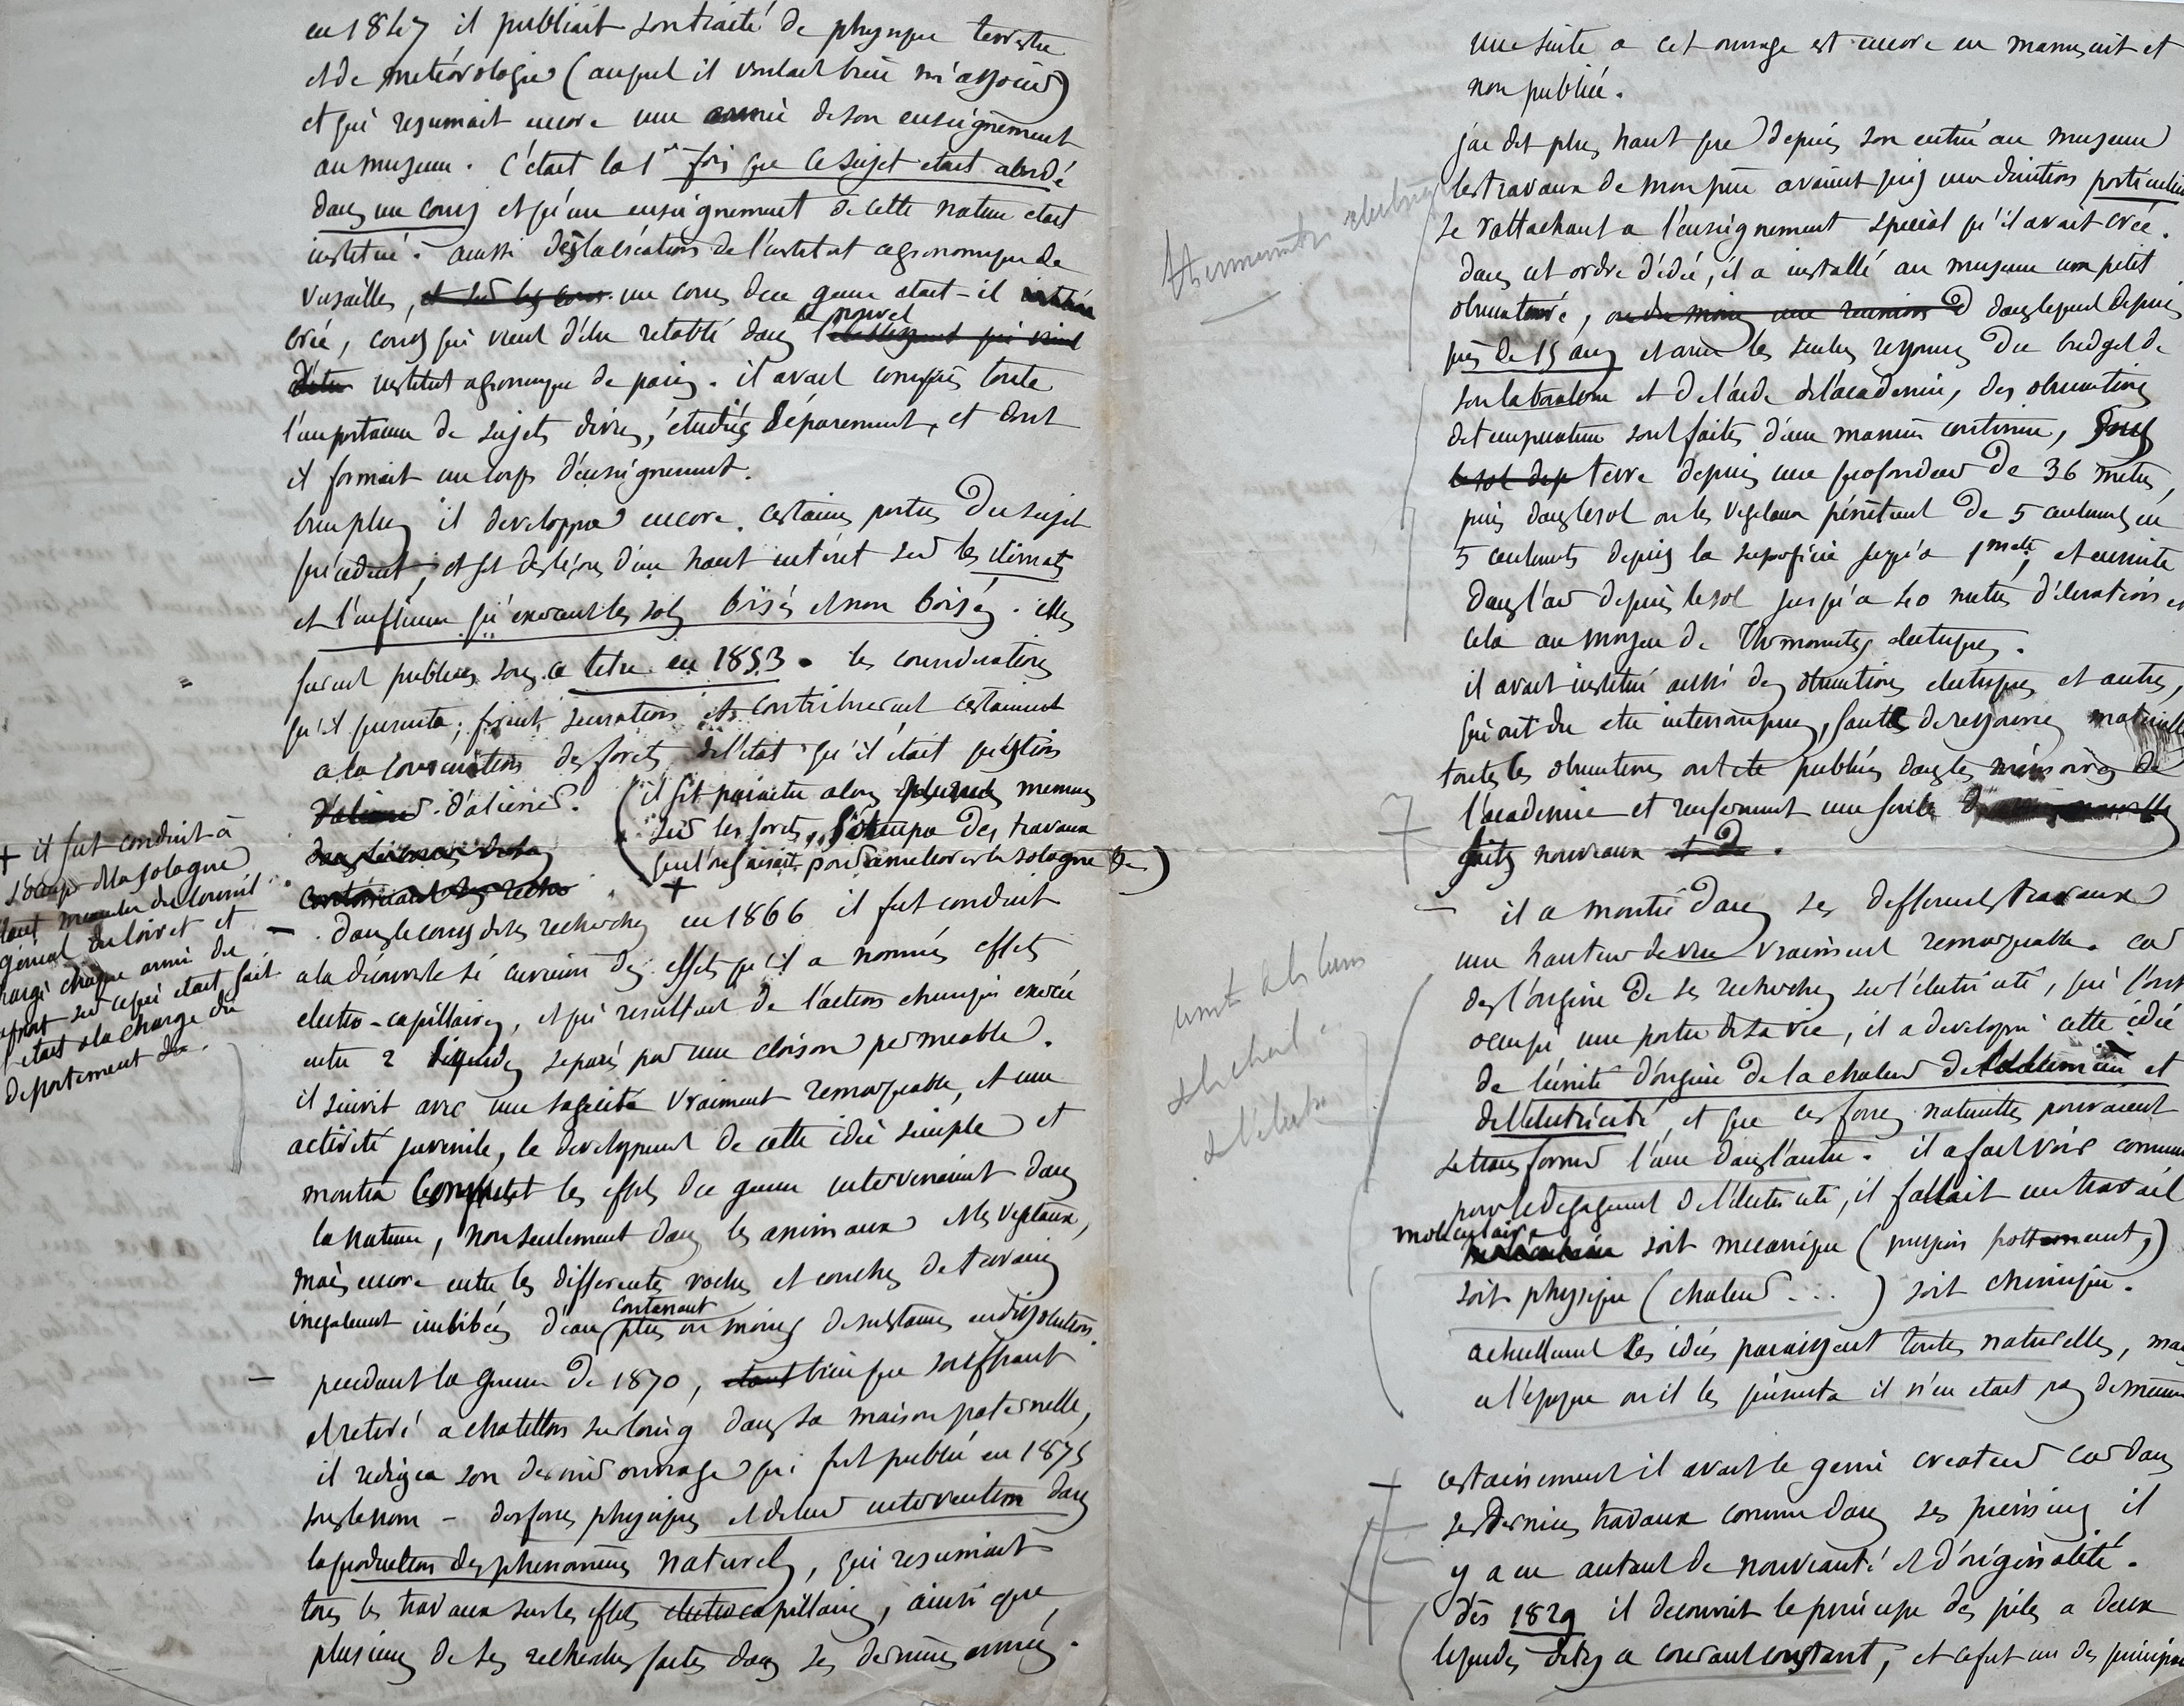 en 1847 il publiait son traité de physique terrestre
et de météorologie (auquel il voulait bien m'associer)
et qui resumait encore une année de son enseignement
au museum. C'était la 1re fois que ce sujet etait abordé
dans un cours et qu'un enseignement de cette nature etait
institué. aussi dès la création de l'institut agronomique de
Versailles, et sur les cours un cours du genre etait-il
créé, cours qui vient d'être retabli dans le nouvel l'etablissement qui vient
d'être institut agronomique de paris. il avait compris toute
l'importance de sujets divers, étudiés séparement, et dont
il formait un corps d'enseignement.
bien plus il developpa encore certaines parties du sujet
précédent, et fit des leçons d'un haut intéret sur les climats
et l'influence qu'exercent les sols boisés et non boisés. elles
furent publiées sous ce titre en 1853. les considerations
qu'il presenta; firent sensation et contribuerent certainement
a la conservation des forets de l'état qu'il était question
d'aliener d'aliener. (il fit paraitre alors plusieurs memoires
sur les forets, s'occupa des travaux
que l'on faisait pour ameliorer la Sologne)
+
+ il fut conduit à
s'occuper de la Sologne
etant membre du conseil
général du loiret et
chargé chaque année du
rapport sur ce qui etait fait
et etait a la charge du
departement
- dans le cours de ses recherches en 1866 il fut conduit
a la découverte si curieuse des effets qu'il a nommés effets
electro-capillaires, et qui resultent de l'action chimique exercée
entre 2 liquides separés par une cloison permeable.
il suivit avec une sagacité vraiment remarquable, et une
activité juvenile, le developpement de cette idée simple et
montra comment les effets du genre intervenaient dans
la nature, non seulement dans les animaux et les vegetaux,
mais encore entre les differentes roches et couches de terrains
inegalement imbibées d'eau contenant plus ou moins de substances en dissolution.
- pendant la guerre de 1870, etant bien que souffrant
et retiré a chatillon sur loing dans sa maison paternelle,
il redigea son dernier ouvrage qui fut publié en 1875
sous le nom - des forces physiques et de leur intervention dans
la production des phenomènes naturels, qui resumait
tous les travaux sur les effets electrocapillaires, ainsi que
plusieurs de ses recherches faites dans ses dernieres années.
une suite a cet ouvrage est encore en manuscrit et
non publiée.
j'ai dit plus haut que depuis son entrée au museum
les travaux de mon père avaient pris une direction particulière
se rattachant a l'enseignement special qu'il avait créé.
dans cet ordre d'idée, il a installé au museum un petit
observatoire, ou du moins une reunion d dans lequel depuis
près de 15 ans et avec les seules ressources du budget de
son laboratoire et de l'aide de l'academie, des observations
de temperature sont faites d'une manière continue, sous
le sol dep terre depuis une profondeur de 36 metres,
puis dans le sol ou les vegetaux pénètrent de 5 centimetres en
5 centimetres depuis la superficie jusqu'a 1 mètre, et ensuite
dans l'air depuis le sol jusqu'a 40 metres d'élévation et
cela au moyen de thermometres electriques.
thermometres electriques
il avait institué aussi des observations electriques et autres,
qui ont du etre interrompues, faute de ressources materielles
toutes les observations ont eté publiées dans les mémoires de
l'academie et renferment une foule d
faits nouveaux et de.
- il a montré dans ses differents travaux
une hauteur de vue vraiment remarquable. car
des l'origine de ses recherches sur l'électricité, qui l'ont
occupé une partie de sa vie, il a developpé cette idée
de l'unité d'origine de la chaleur de la lumière et
de l'electricité, et que ces forces naturelles pouvaient
se transformer l'une dans l'autre. il a fait voir comment
pour le degagement de l'électricité, il fallait un travail
moleculaire soit mecanique (pression frottement,)
soit physique (chaleur ...) soit chimique.
unité de la lumière
de la chaleur
de l'electr
actuellement ces idées paraissent toutes naturelles, mais
a l'epoque ou il les présenta il n'en etait pas de même
certainement il avait le genie createur car dans
ses derniers travaux comme dans ses premiers il
y a eu autant de nouveauté et d'originalité.
dès 1829 il decouvrit le principe des piles a deux
liquides dites a courant constant, et ce fut un des principes